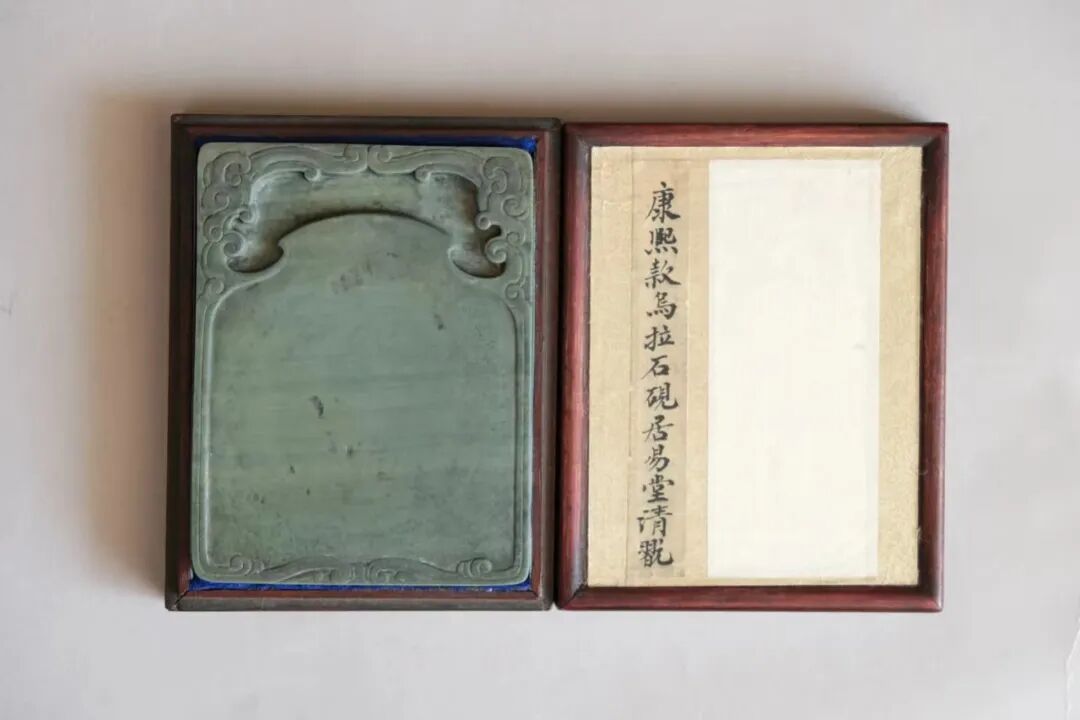 康熙款烏拉石硯居易堂清翫